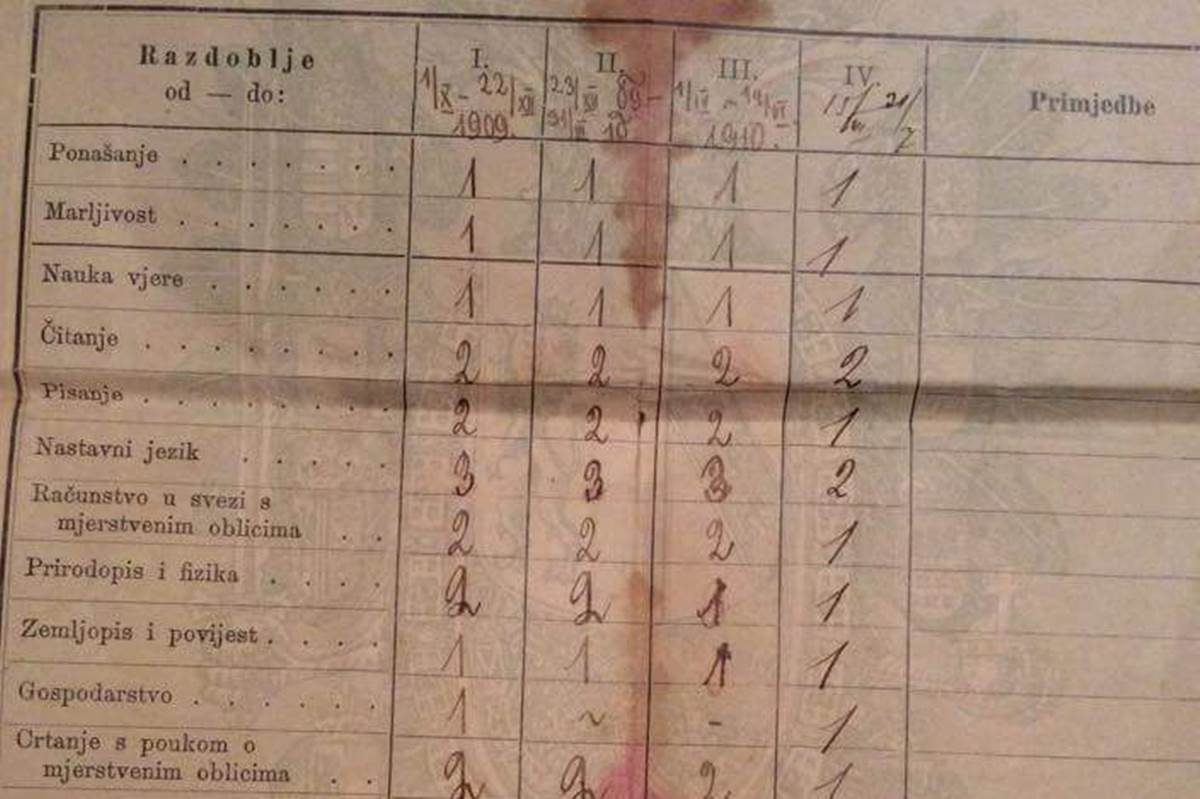 Razdoblje od — do: I. 1/X - 22/XII 1909. II. 23/XII 09 - 31/III 10 III. 1/IV - 14/VI 1910. IV. 15/VI 21/7 Primjedbe
Ponašanje . . . . . . . 1 1 1 1
Marljivost . . . . . . . 1 1 1 1
Nauka vjere . . . . . . 1 1 1 1
Čitanje . . . . . . . . 2 2 2 2
Pisanje . . . . . . . . 2 2 2 1
Nastavni jezik . . . . . 3 3 3 2
Računstvo u svezi s
mjerstvenim oblicima . . 2 2 2 1
Prirodopis i fizika . . . . 2 2 1 1
Zemljopis i povijest . . . . 1 1 1 1
Gospodarstvo . . . . . . 1 ~ - 1
Crtanje s poukom o
mjerstvenim oblicima . . 2 2 2 1